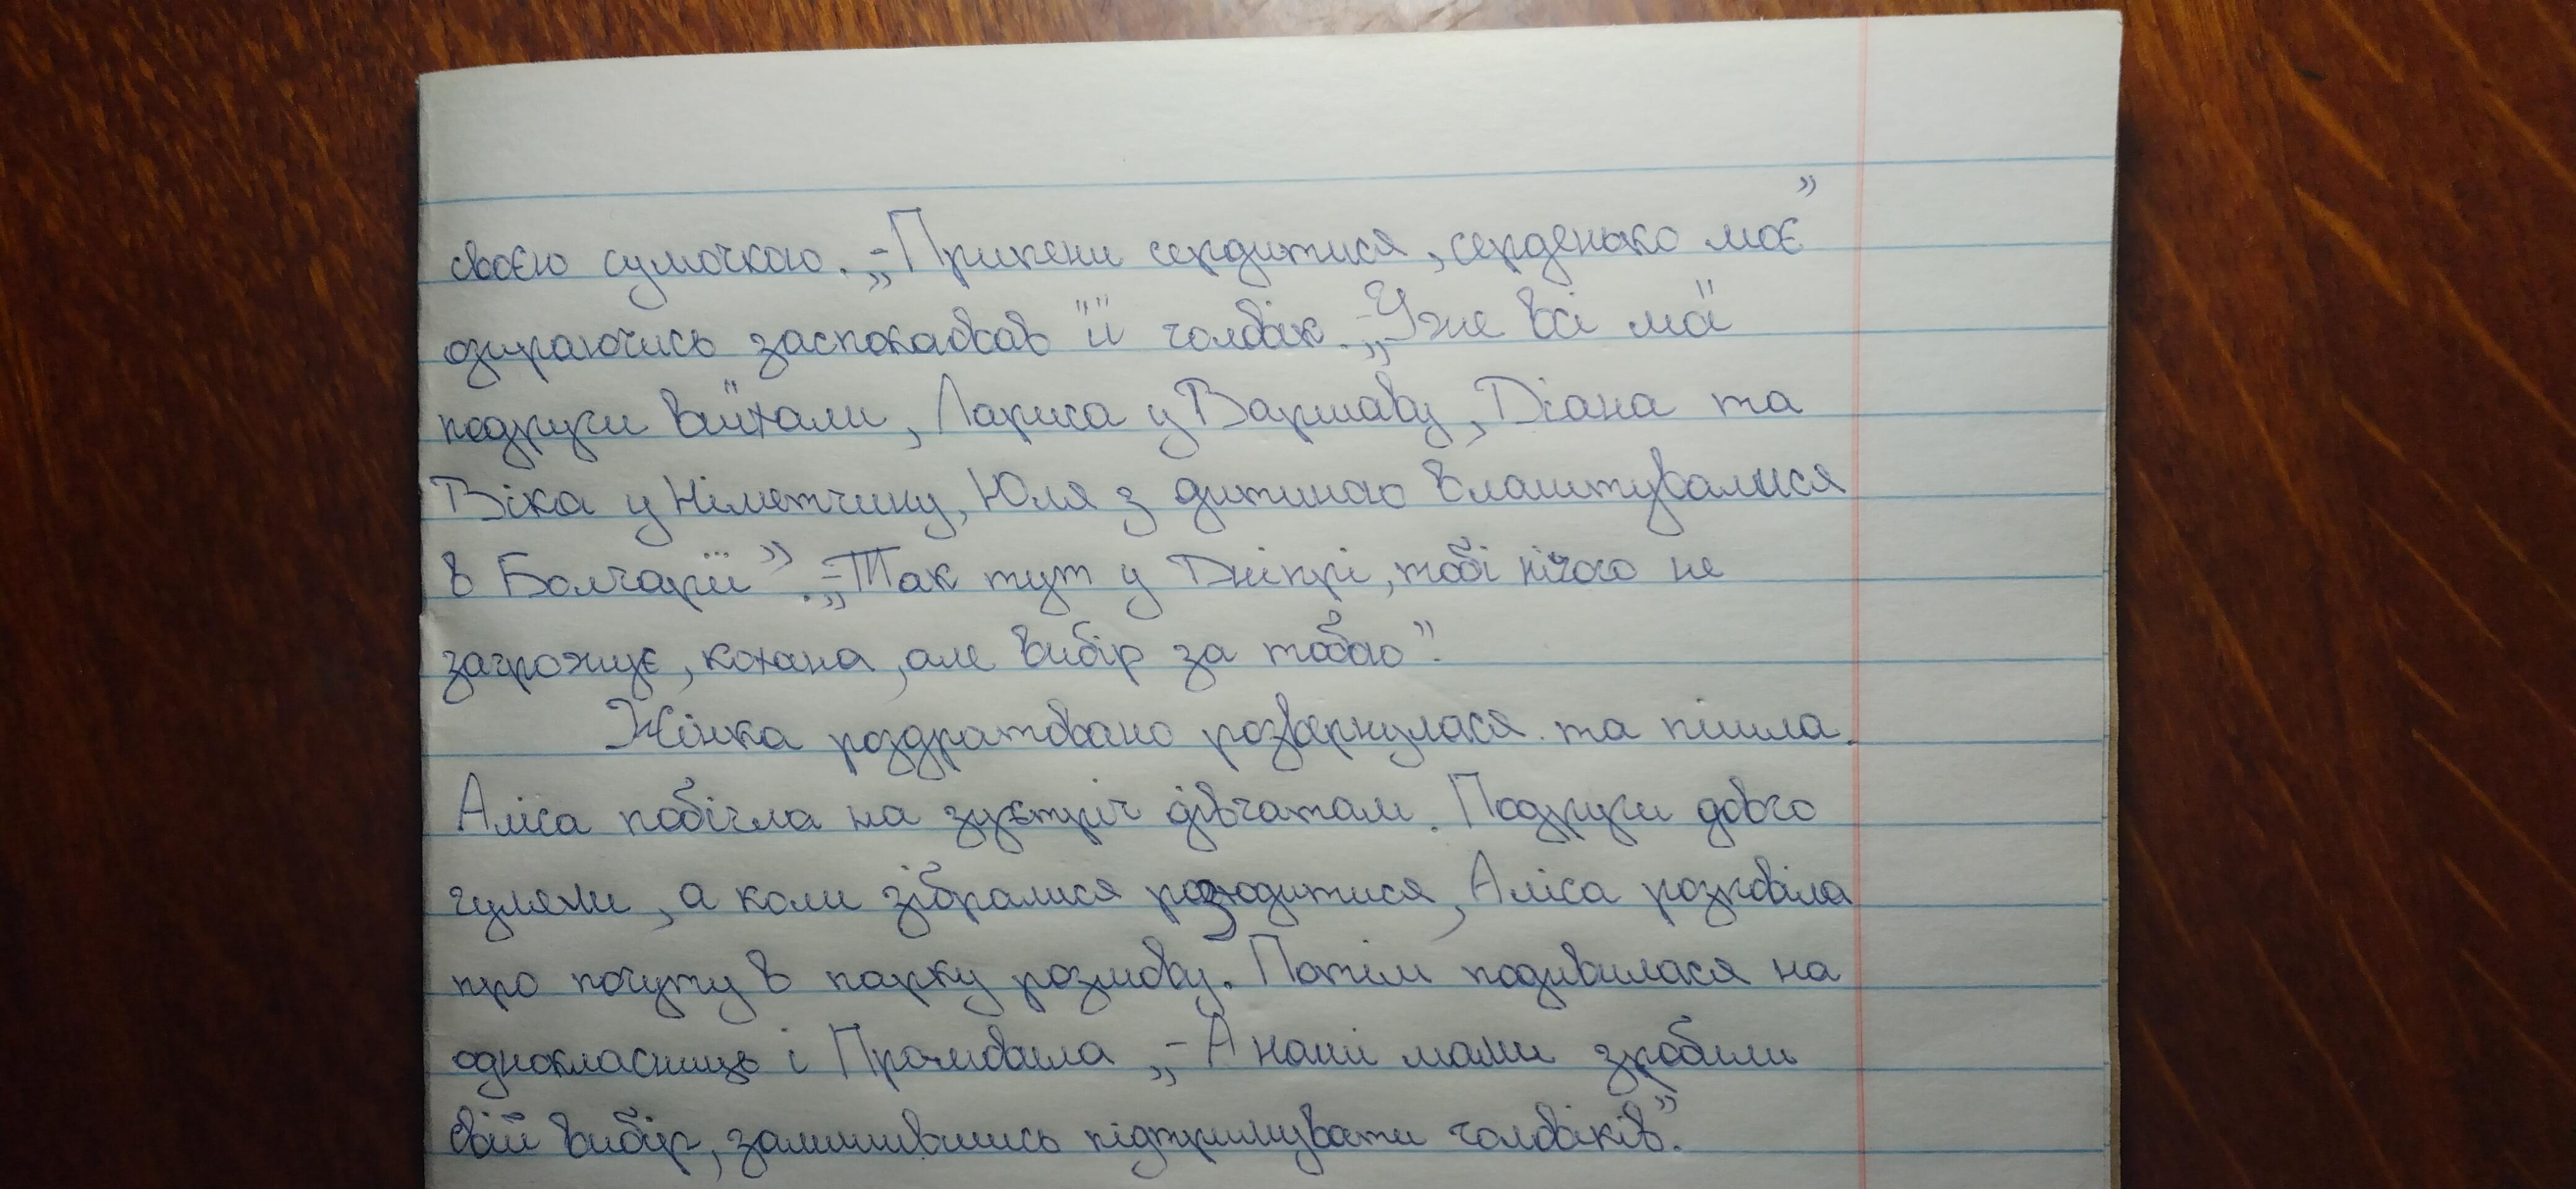 своєю сумочкою. „-Припени сердитися, серденько моє”
озираючись заспокавсав її чоловік. „-Уже всі мої
подруги виїхали, Лариса у Варшаву, Діана та
Віка у Німетчину, Юля з дитиною влаштувалися
в Болгарії”. „-Так тут у Дніпрі, тобі нічого не
загрожує, кохана, але вибір за тобою”.
Жінка роздратовано розвернулася та пішла.
Аліса побігла на зустріч дівчатам. Подруги довго
гуляли, а коли зібралися розходитися, Аліса розповіла
про почуту в парку розмову. Потім подивилася на
однокласниць і Промовила „-А наші мами зробили
свій вибір, залишившись підтримувати чоловіків”.